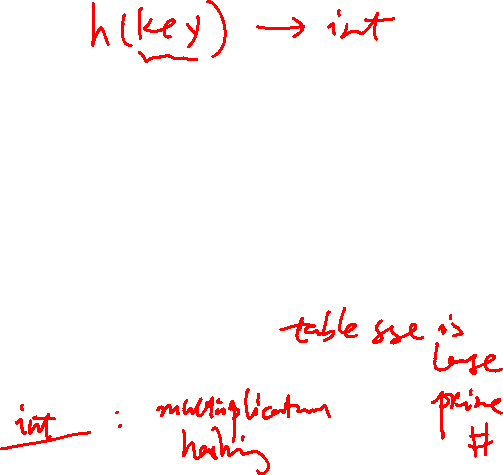 h(key) → int
table size is
large
prime
#
int : multiplication
hashing